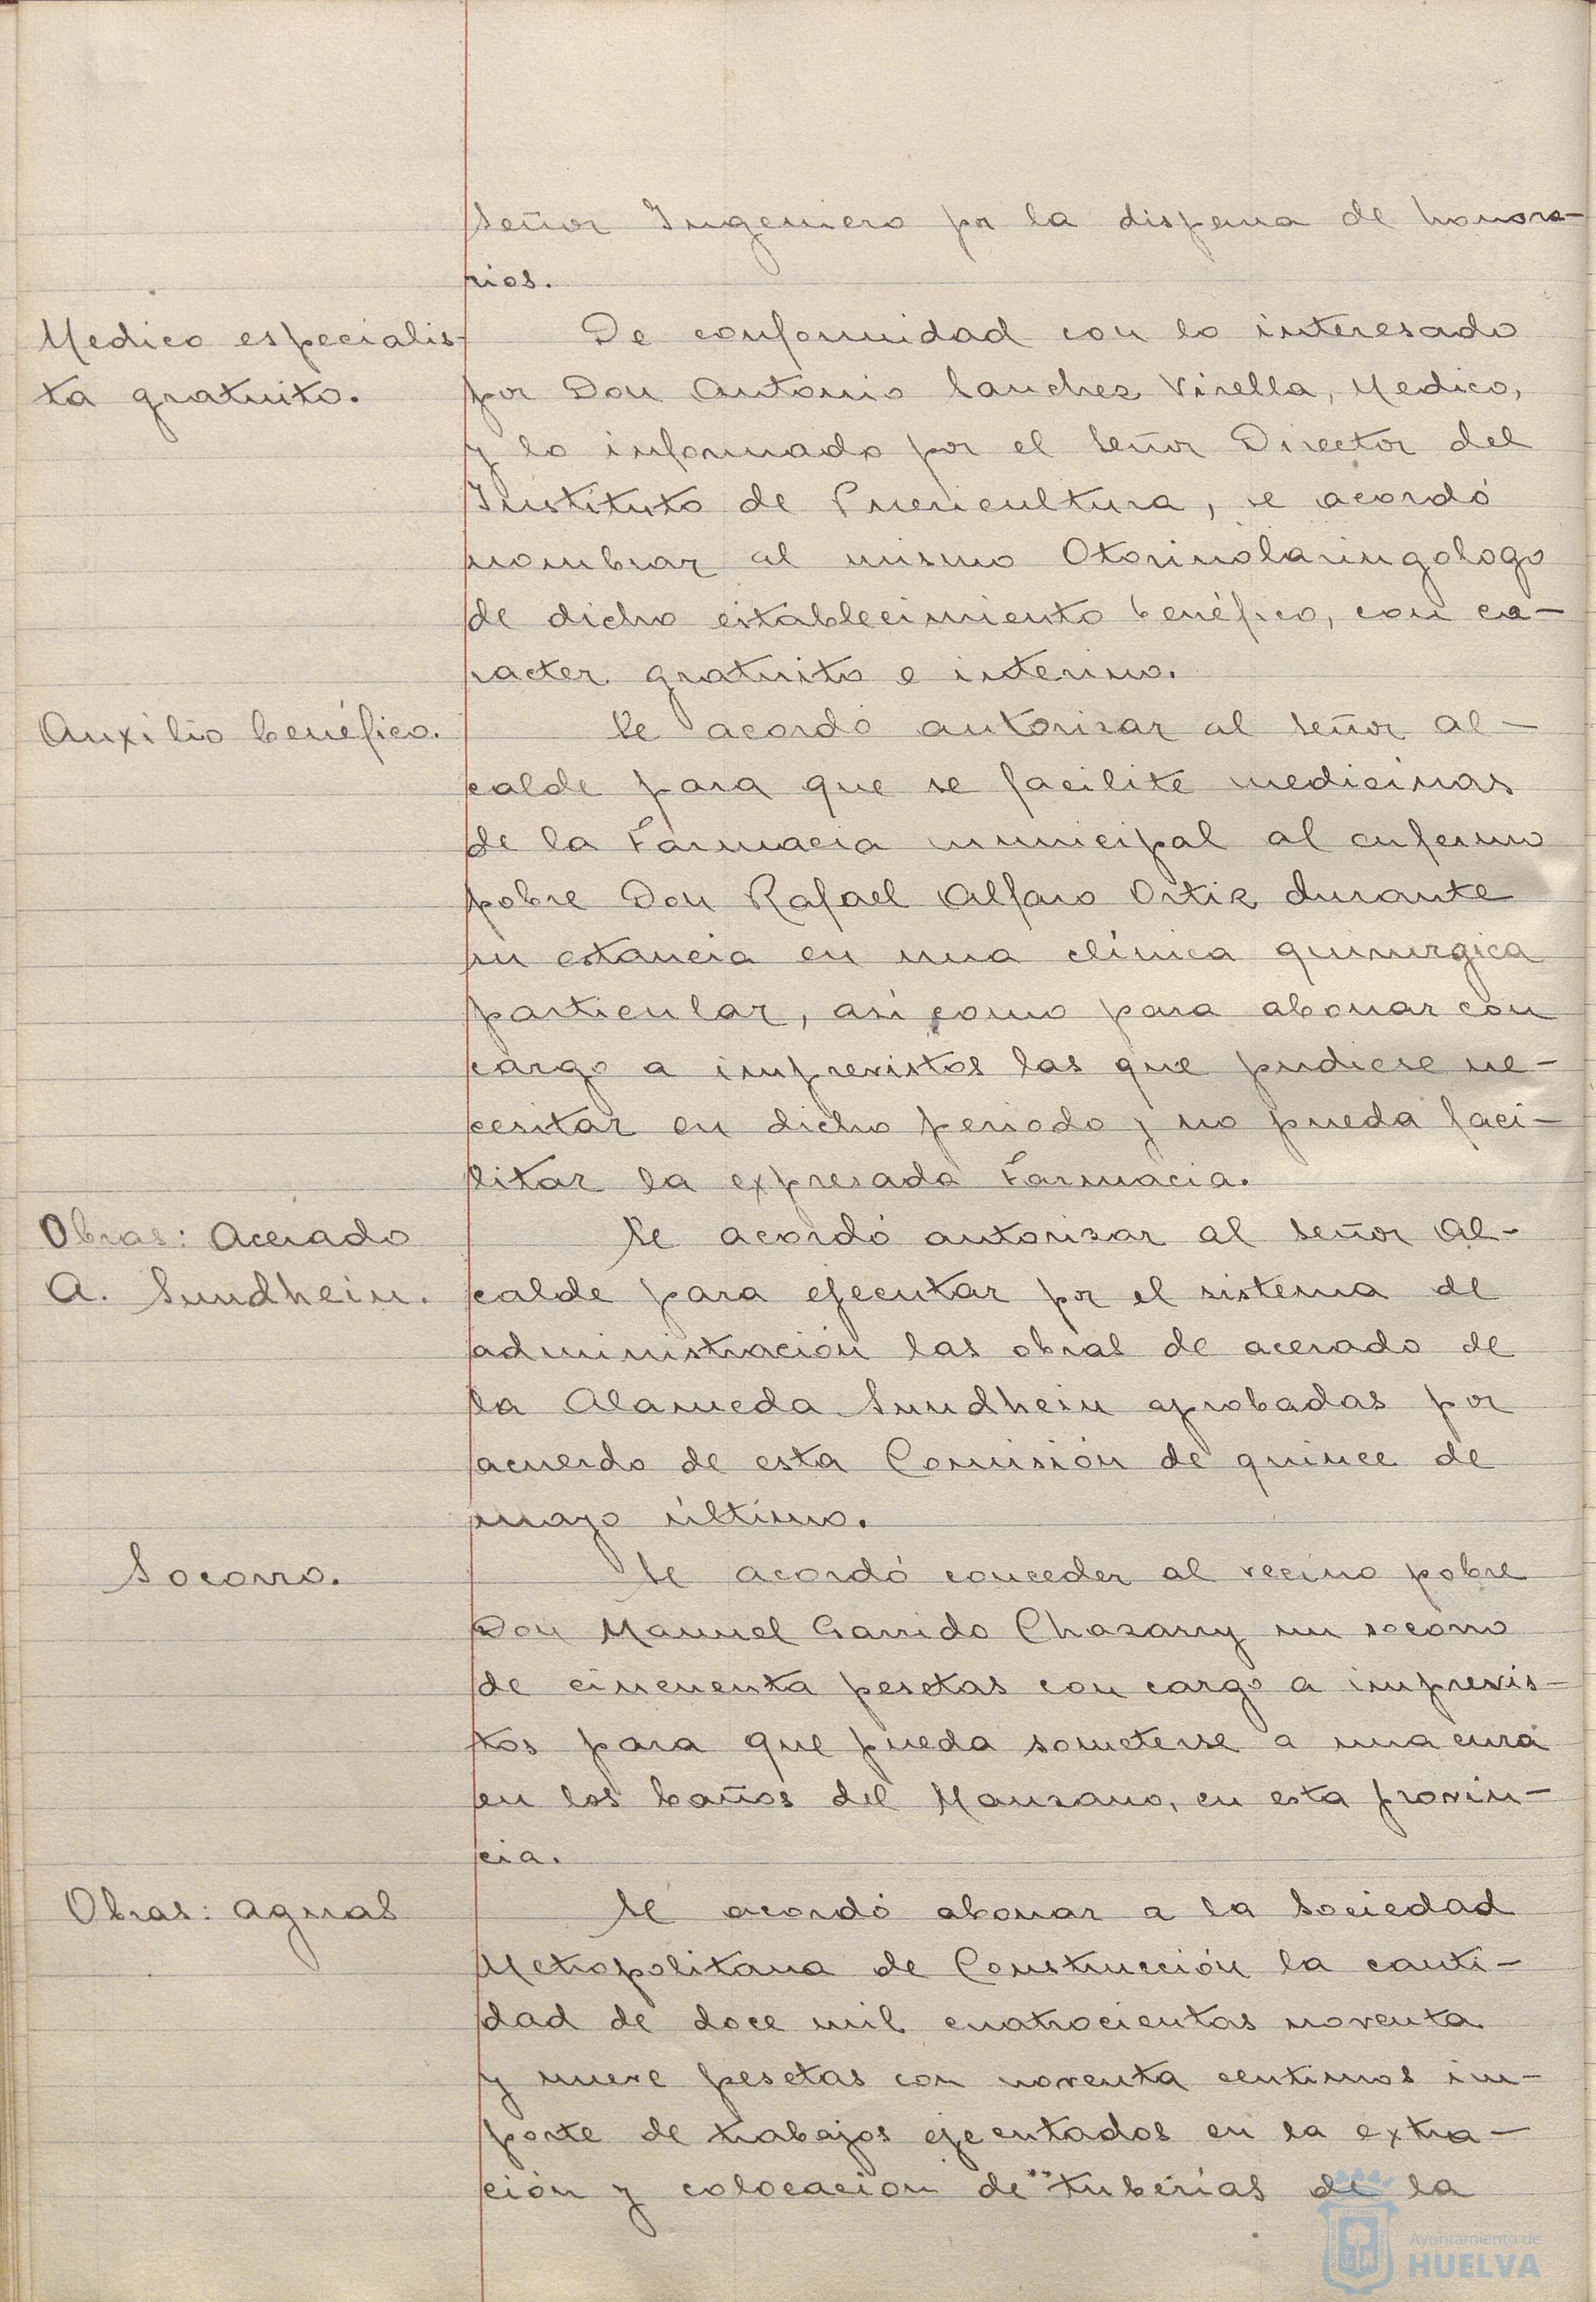 señor Ingeniero por la dispensa de honora-
rios.
Medico especialis-
ta gratuito.
De conformidad con lo interesado
por Don Antonio Sanchez Virella, Medico,
y lo informado por el señor Director del
Instituto de Puericultura, se acordó
nombrar al mismo Otorinolaringologo
de dicho establecimiento benéfico, con ca-
racter gratuito e interino.
Auxilio benéfico.
Se acordó autorizar al señor Al-
calde para que se facilite medicinas
de la Farmacia municipal al enfermo
pobre Don Rafael Alfaro Ortiz durante
su estancia en una clínica quirurgica
particular, asi como para abonar con
cargo a imprevistos las que pudiese ne-
cesitar en dicho periodo y no pueda faci-
litar la expresada Farmacia.
Obras: Acerado
A. Sundhein.
Se acordó autorizar al señor Al-
calde para ejecutar por el sistema de
administración las obras de acerado de
la Alameda Sundhein aprobadas por
acuerdo de esta Comisión de quince de
mayo último.
Socorro.
Se acordó conceder al vecino pobre
Don Manuel Garrido Chazarry un socorro
de cincuenta pesetas con cargo a imprevis-
tos para que pueda someterse a una cura
en los baños del Manzano, en esta provin-
cia.
Obras: aguas
Se acordó abonar a la Sociedad
Metropolitana de Construcción la canti-
dad de doce mil cuatrocientas noventa
y nueve pesetas con noventa centimos im-
porte de trabajos ejecutados en la extra-
ción y colocación de tuberías de la
Ayuntamiento de
HUELVA